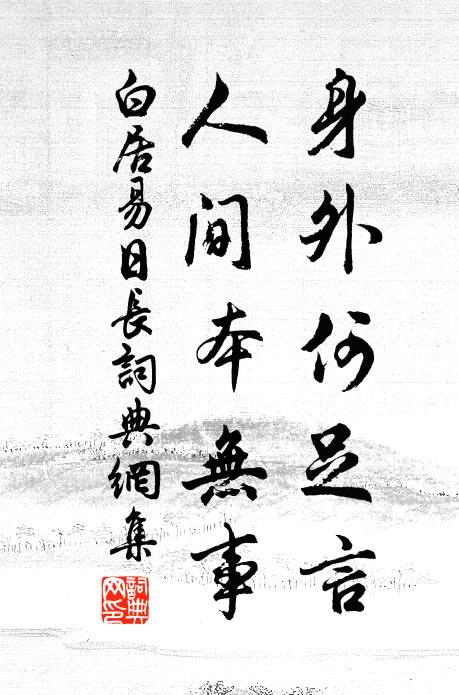 身外何足言
人间本無事
白居易日長詞典網集
詞典